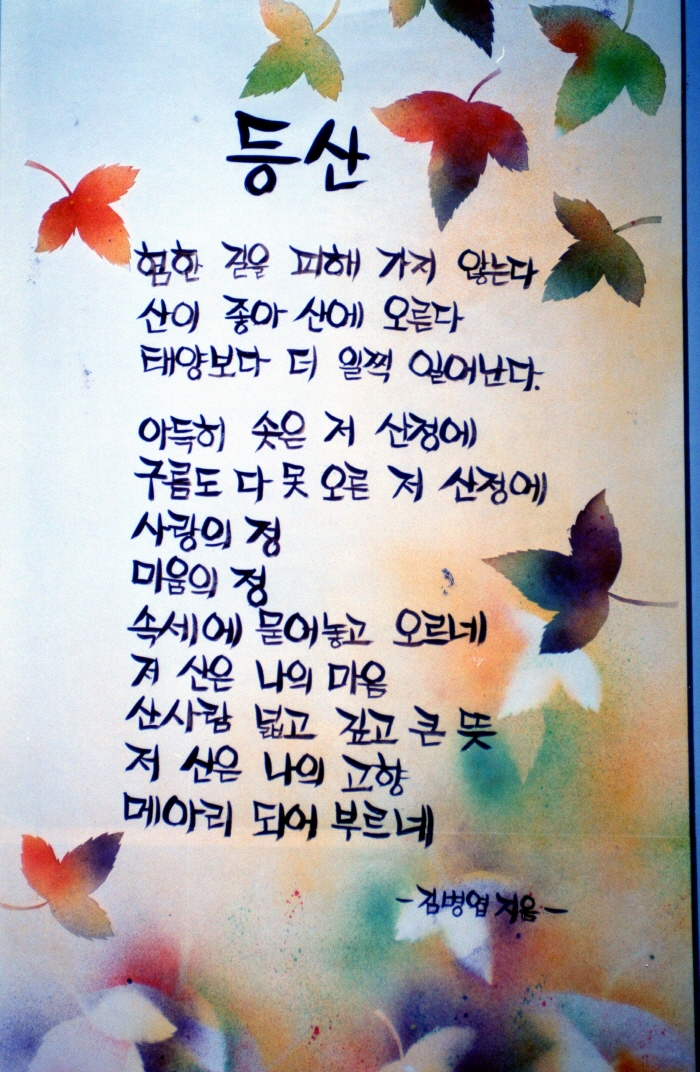 등산
험한 길을 피해 가지 않는다
산이 좋아 산에 오른다
태양보다 더 일찍 일어난다.
아득히 솟은 저 산정에
구름도 다 못 오른 저 산정에
사랑의 정
미움의 정
속세에 묻어놓고 오르네
저 산은 나의 마음
산사람 넓고 깊고 큰 뜻
저 산은 나의 고향
메아리 되어 부르네
-김병엽 지음-